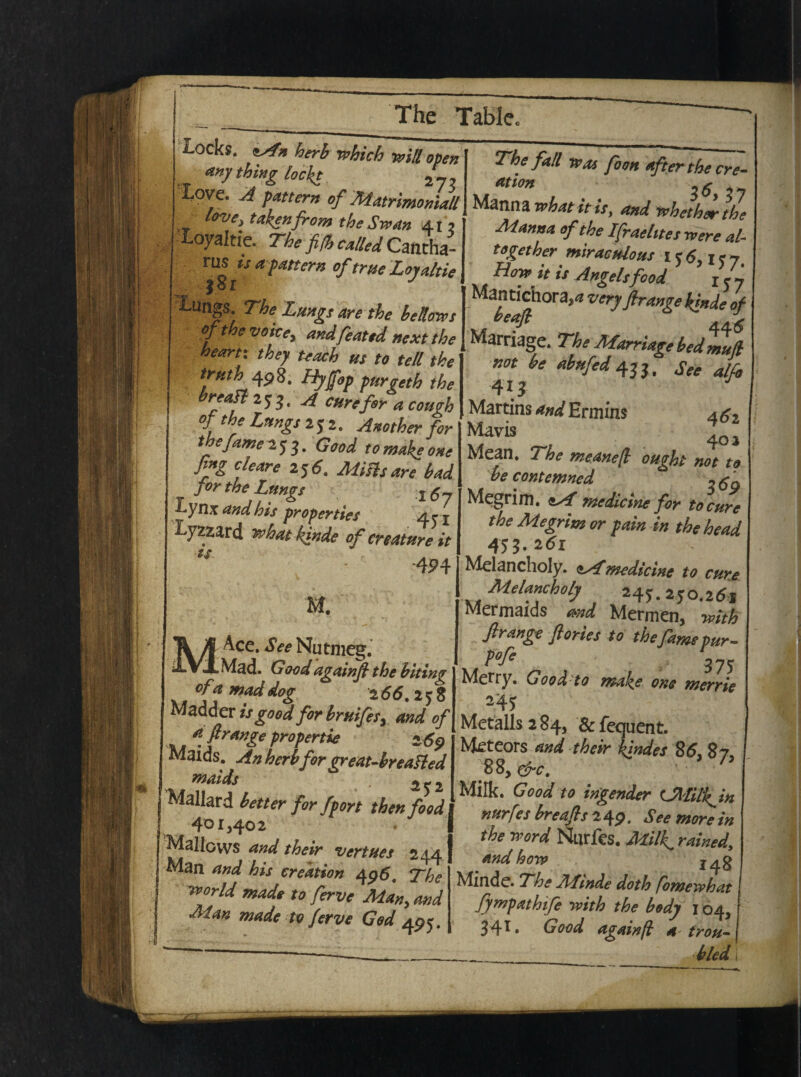 The Table.
Locks. An herb which will open
any thing lockt 273
Love. A pattern of Matrimoniall
love, taken from the Swan 413
Loyaltie. The fiſh called Cantha-
rus is a pattern of true Loyaltie
381
Lungs. The Lungs are the bellows
of the voice, and ſeated next the
heart: they teach us to tell the
truth 498. Hyſſop purgeth the
breaſt 253. A cure for a cough
of the Lungs 252. Another for
the ſame 253. Good to make one
ſing cleare 256. Miſts are bad
for the Lungs 167
Lynx and his properties 451
Lyzzard what kinde of creature it
is 494
M.
MAce. See Nutmeg.
Mad. Good againſt the biting
of a mad dog 266. 258
Madder is good for bruiſes, and of
a ſtrange propertie 269
Maids. An herb for great-breaſted
maids 252
Mallard better for ſport then food
401,402
Mallows and their vertues 244
Man and his creation 496. The
world made to ſerve Man, and
Man made to ſerve God 495.
The fall was ſoon after the cre-
ation 36, 37
Manna what it is, and whether the
Manna of the Iſraelites were al-
together miraculous 156, 157.
How it is Angels food 157
Mantichora, a very ſtrange kinde of
beaſt 446
Marriage. The Marriage bed muſt
not be abuſed 433. See alſo
413
Martins and Ermins 462
Mavis 403
Mean. The meaneſt ought not to
be contemned 369
Megrim. A medicine for to cure
the Megrim or pain in the head
453. 261
Melancholy. A medicine to cure
Melancholy 245. 250. 261
Mermaids and Mermen, with
ſtrange ſtories to the ſame pur-
poſe 375
Merry. Good to make one merrie
245
Metalls 284, & ſequent.
Meteors and their kindes 86, 87,
88, &c.
Milk. Good to ingender Milk in
nurſes breaſts 249. See more in
the word Nurſes. Milk rained,
and how 148
Minde. The Minde doth ſomewhat
ſympathiſe with the body 104,
341. Good againſt a trou-
bled